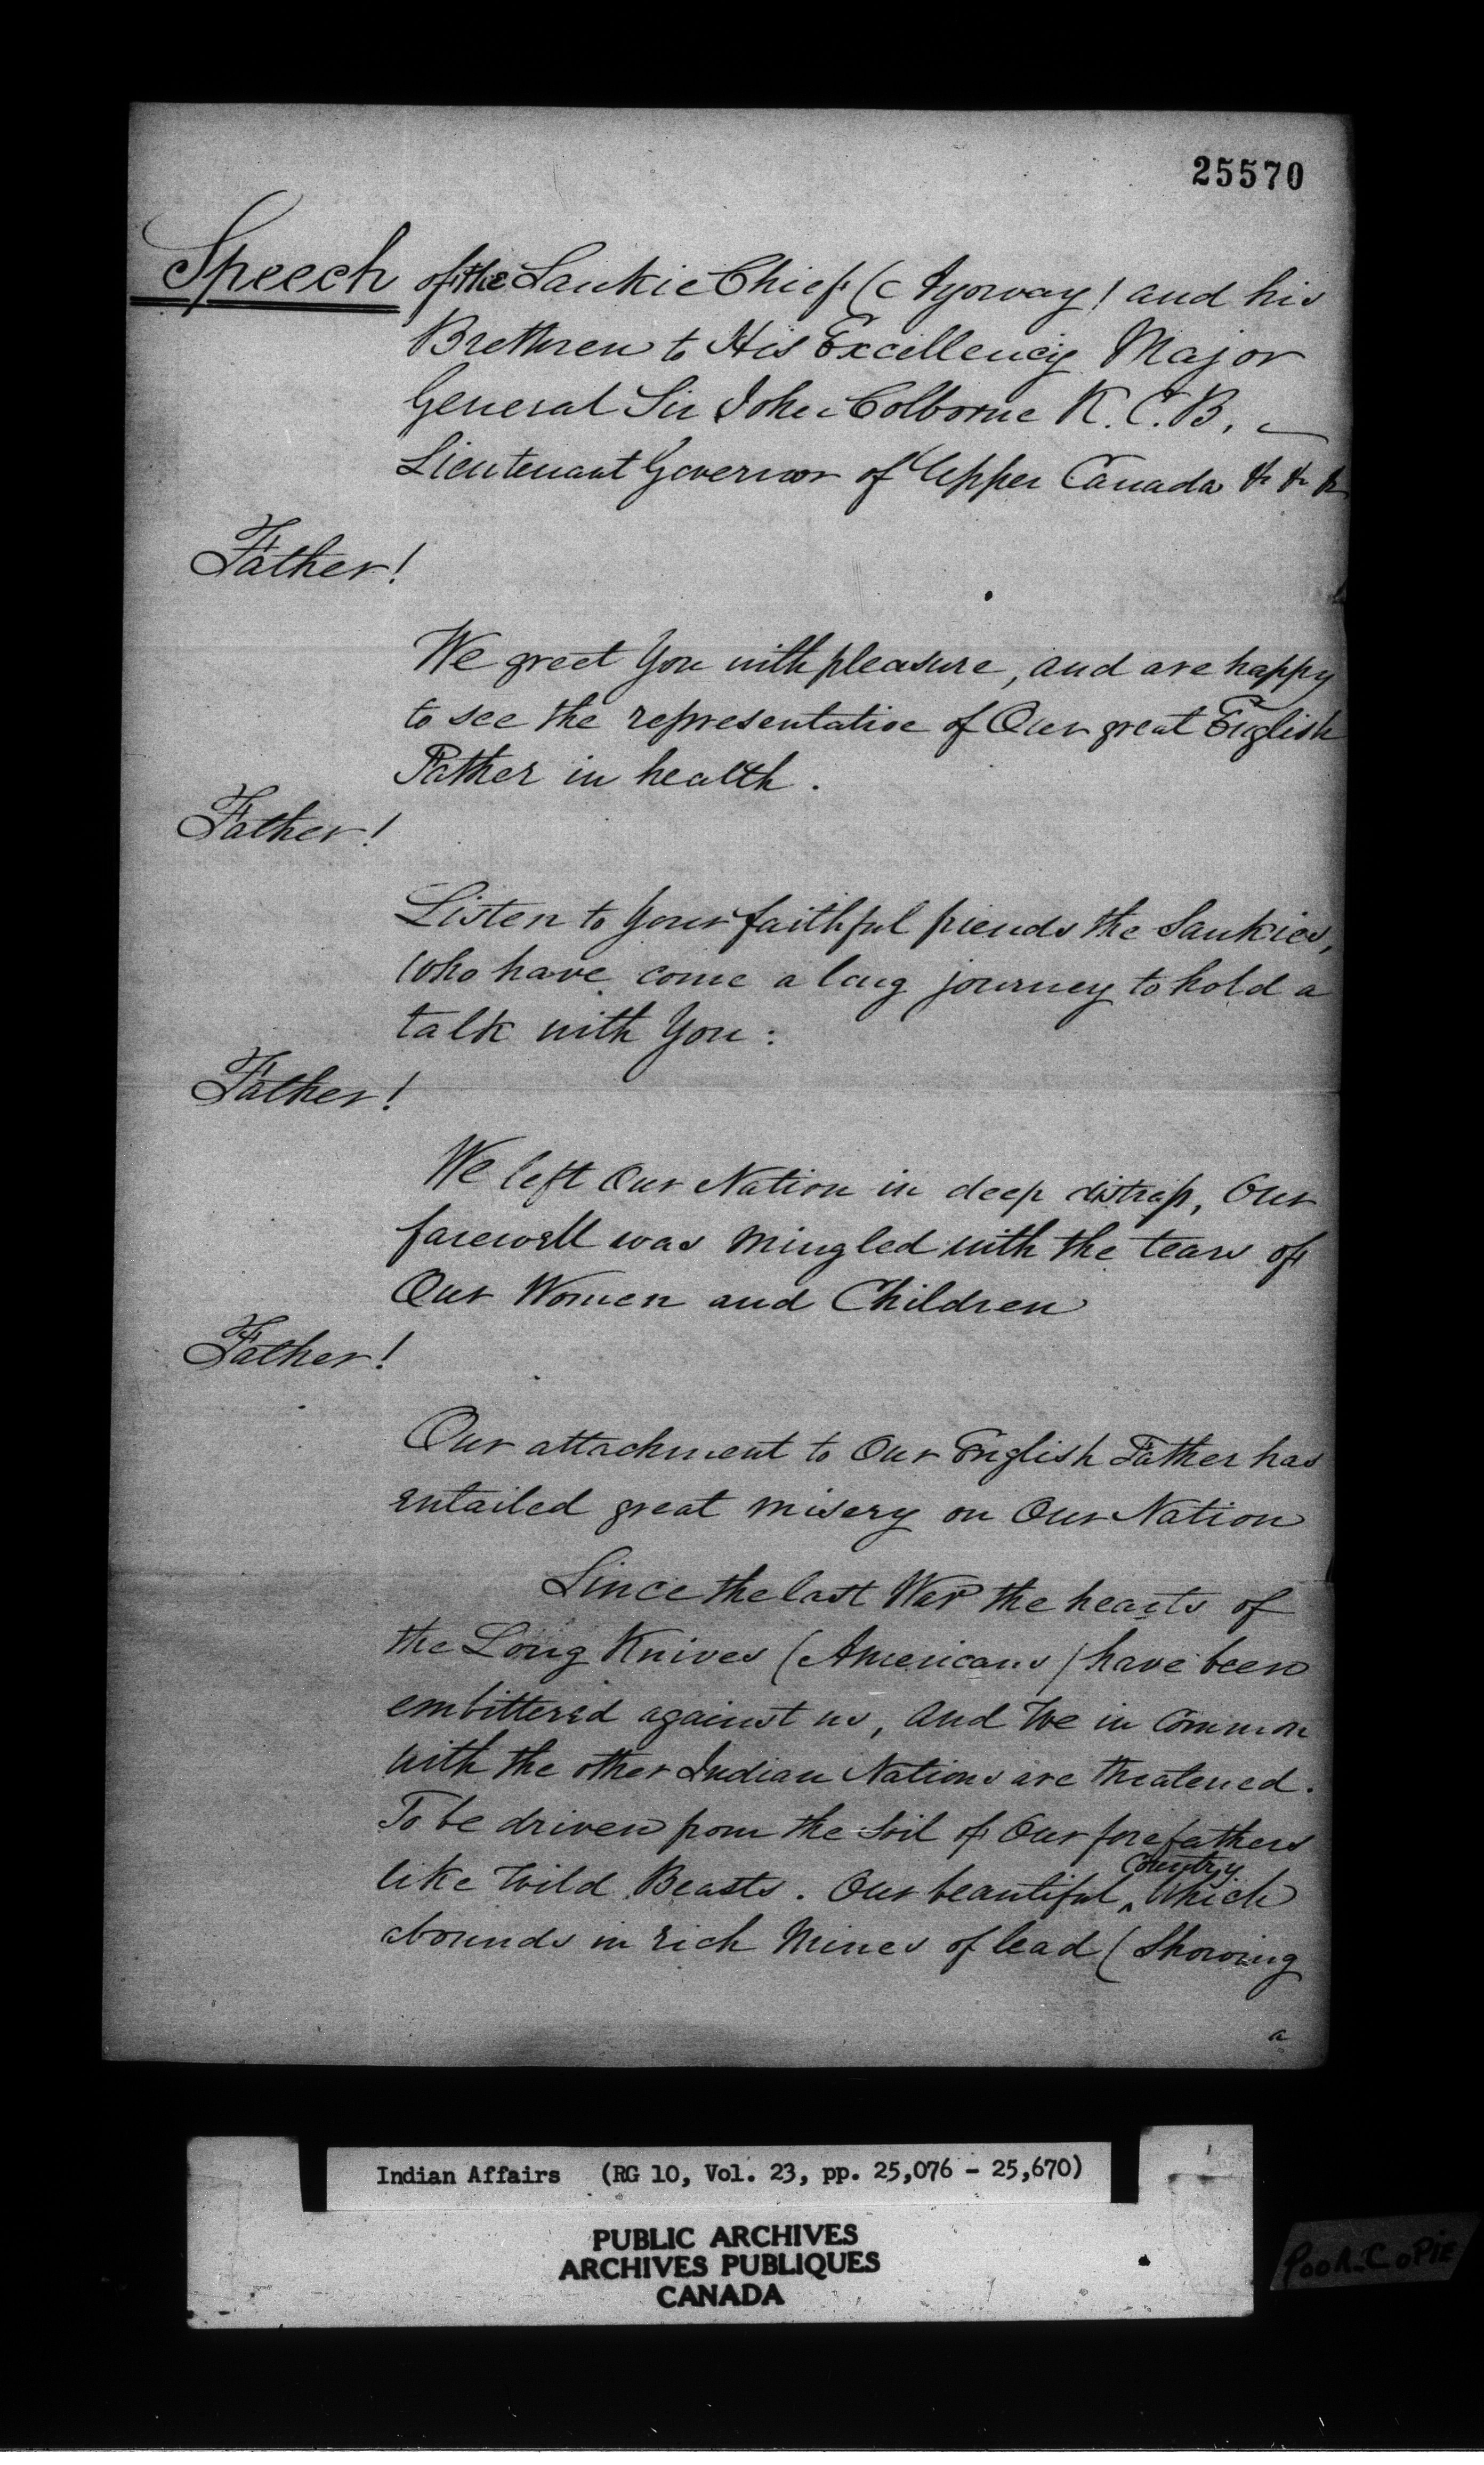 25570
Speech of the Saukie Chief (Ayorway) and his
Brethren to His Excellency Major
General Sir John Colborne K.C.B.
Lieutenant Governor of Upper Canada &c &c &c
Father!
We greet You with pleasure, and are happy
to see the representative of Our great English
Father in health.
Father!
Listen to Your faithful friends the Saukies,
who have come a long journey to hold a
talk with You:
Father!
We left Our Nation in deep distress, Our
farewell was mingled with the tears of
Our Women and Children
Father!
Our attachment to Our English Father has
entailed great misery on Our Nation
Since the last War the hearts of
the Long Knives (Americans) have been
embittered against us, and We in Common
with the other Indian Nations are threatened.
To be driven from the Soil of Our forefathers
like Wild Beasts. Our beautiful Country Which
abounds in rich Mines of lead (Showing
a
Indian Affairs (RG 10, Vol. 23, pp. 25,076 - 25,670)
PUBLIC ARCHIVES
ARCHIVES PUBLIQUES
CANADA
Poor_CoPie